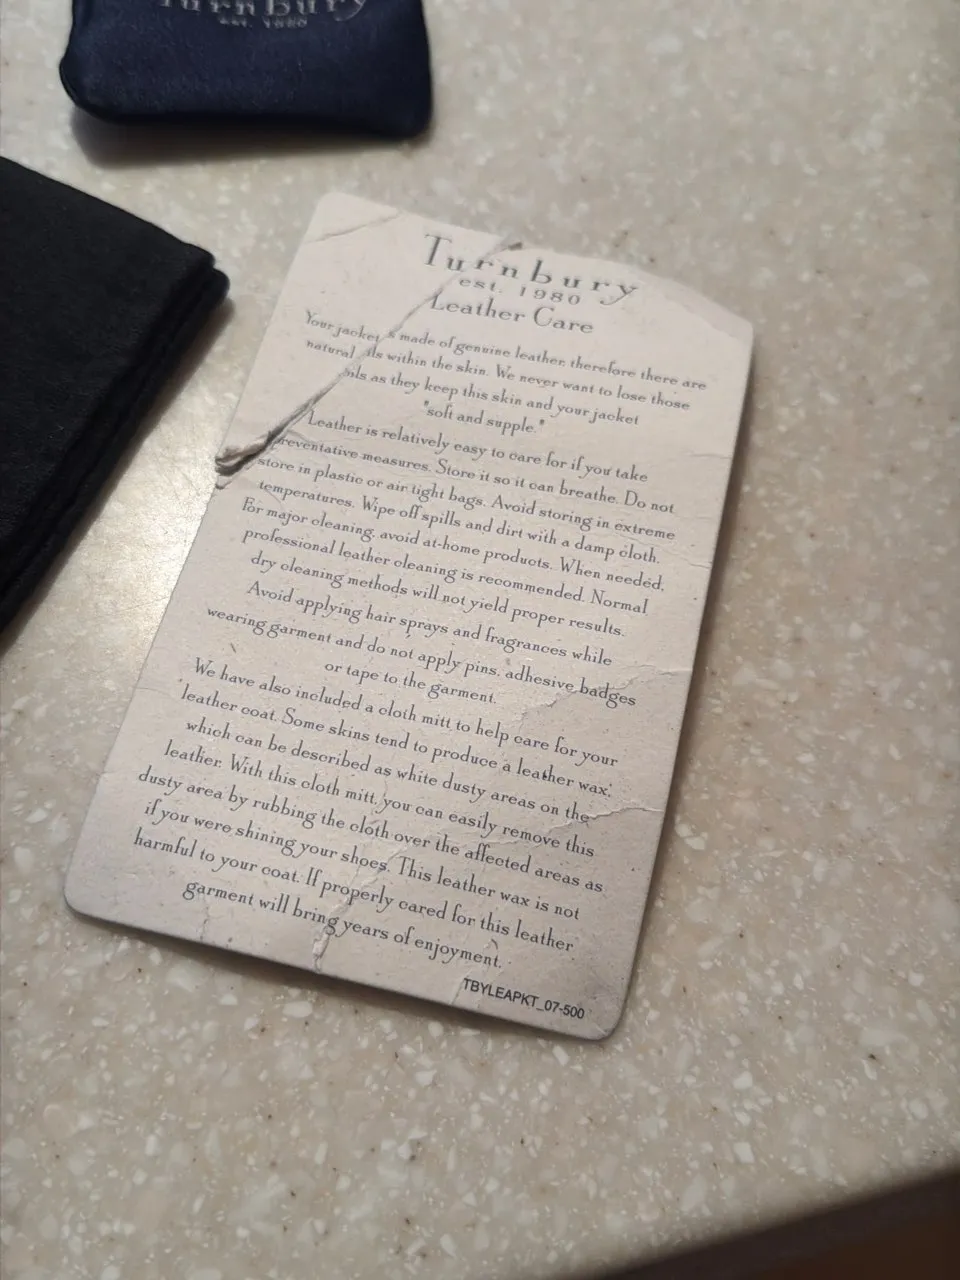 Turnbury
est. 1980
Turnbury
est. 1980
Leather Care
Your jacket is made of genuine leather, therefore there are
natural oils within the skin. We never want to lose those
oils as they keep this skin and your jacket
"soft and supple."
Leather is relatively easy to care for if you take
preventative measures. Store it so it can breathe. Do not
store in plastic or air tight bags. Avoid storing in extreme
temperatures. Wipe off spills and dirt with a damp cloth.
For major cleaning, avoid at-home products. When needed,
professional leather cleaning is recommended. Normal
dry cleaning methods will not yield proper results.
Avoid applying hair sprays and fragrances while
wearing garment and do not apply pins, adhesive badges
or tape to the garment.
We have also included a cloth mitt to help care for your
leather coat. Some skins tend to produce a leather wax,
which can be described as white dusty areas on the
leather. With this cloth mitt, you can easily remove this
dusty area by rubbing the cloth over the affected areas as
if you were shining your shoes. This leather wax is not
harmful to your coat. If properly cared for this leather
garment will bring years of enjoyment.
TBYLEAPKT_07-500